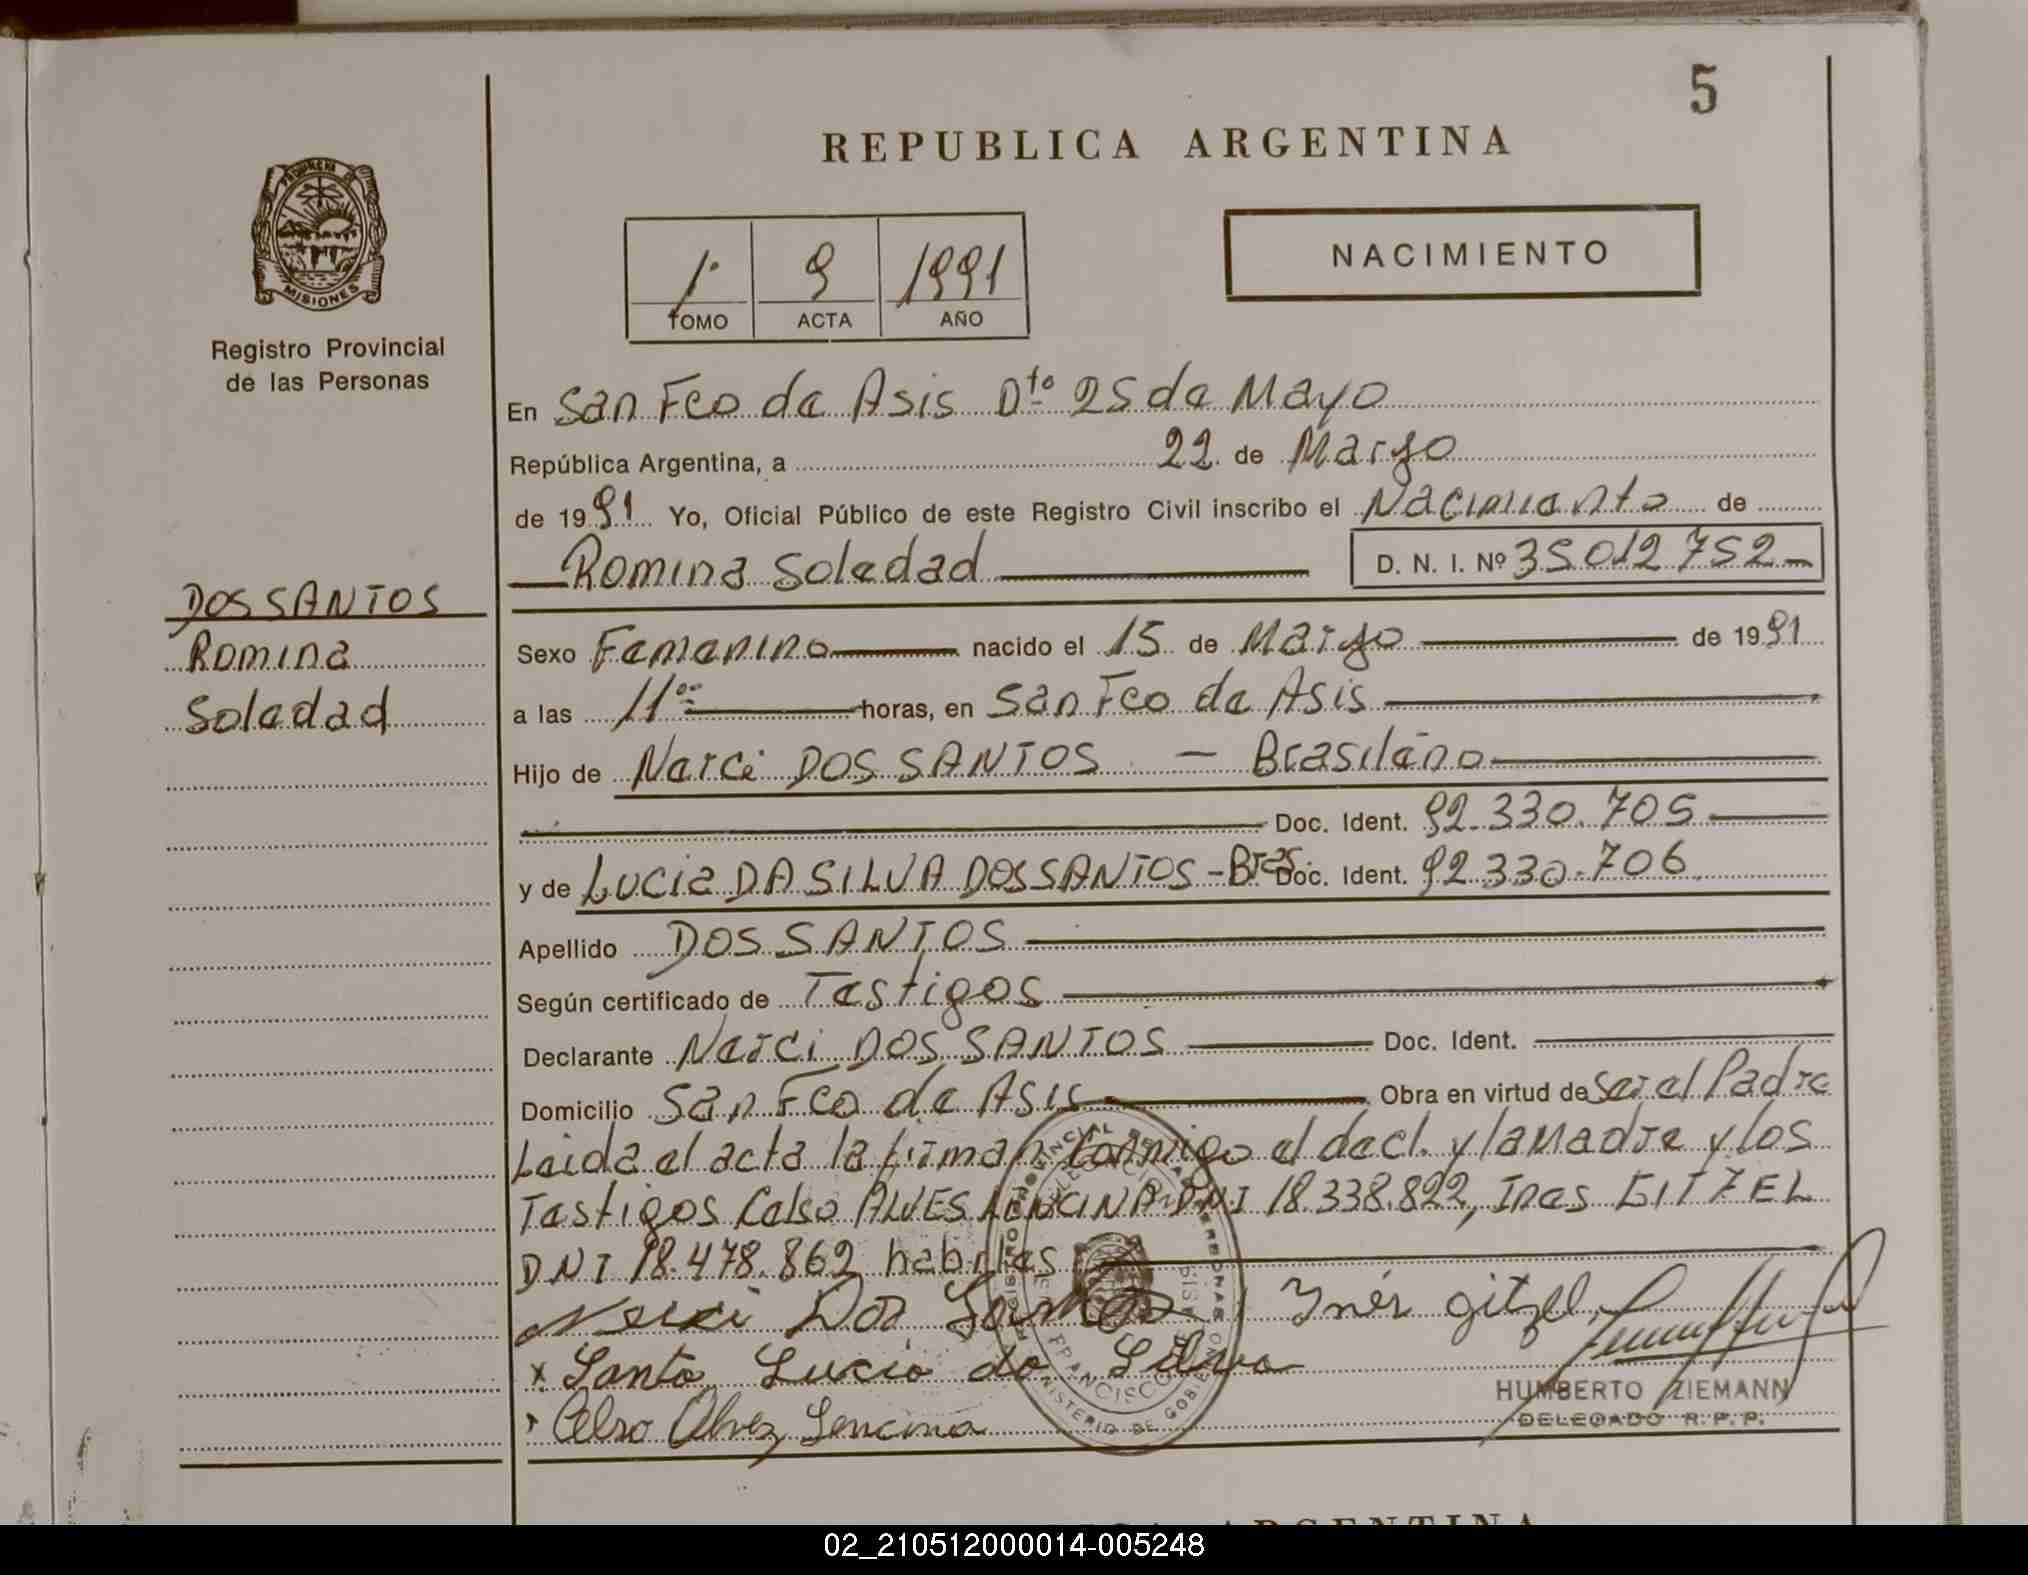 5
REPUBLICA ARGENTINA
PROVINCIA DE
MISIONES
Registro Provincial
de las Personas
NACIMIENTO
1º 9 1991
TOMO ACTA AÑO
En San Fco de Asis Dto 25 de Mayo
República Argentina, a 22 de Marzo
de 1991 Yo, Oficial Público de este Registro Civil inscribo el Nacimiento de
Romina Soledad D. N. I. Nº 35012752
DOS SANTOS
Romina
Soledad
Sexo Femenino nacido el 15 de Marzo de 1991
a las 11 00 horas, en San Fco de Asis
Hijo de Narci DOS SANTOS - Brasileño
Doc. Ident. 92.330.705
y de Lucia DA SILVA DOS SANTOS - Bras. Doc. Ident. 92.330.706
Apellido DOS SANTOS
Según certificado de Testigos
Declarante Narci DOS SANTOS Doc. Ident.
Domicilio San Fco de Asis Obra en virtud de Ser el Padre
Leida el acta la firman conmigo el decl. y la Madre y los
Testigos Celso ALVES LENCINA DNI 18.338.822, Ines GITZEL
DNI 18.478.862 habiles
Narci Dos Santos Inés Gitzel
x Santa Lucia da Silva
Celso Alvez Lencina
HUMBERTO ZIEMANN
DELEGADO R. P. P.
MINISTERIO DE GOBIERNO
ARGENTINA
02_210512000014-005248